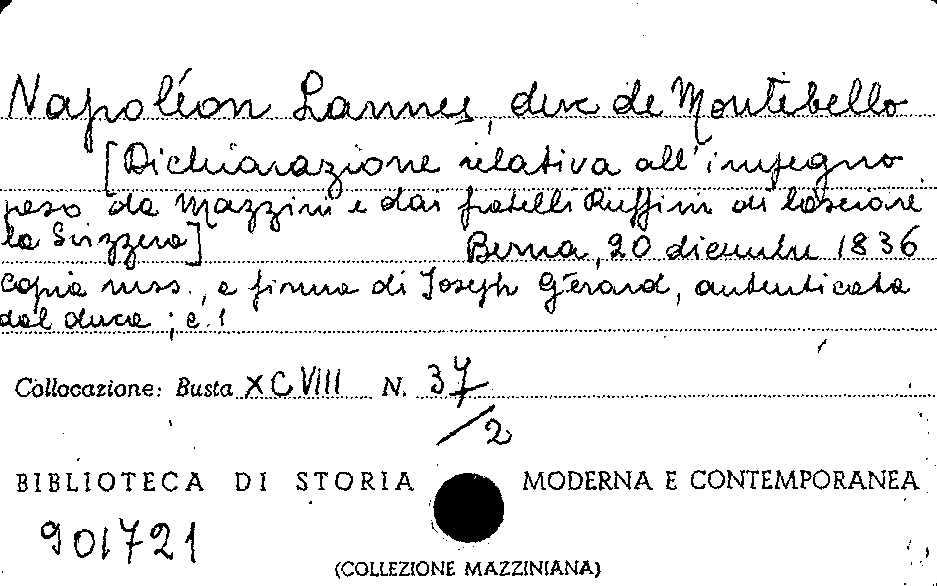 Napoléon Lannes, duc de Montebello
[Dichiarazione relativa all'impegno
preso da Mazzini e dai fratelli Ruffini di lasciare
la Svizzera] Berna, 20 dicembre 1836
Copia mss., a firma di Joseph Gérard, autenticata
dal duca; c. 1
Collocazione: Busta XCVIII N. 37/2
BIBLIOTECA DI STORIA MODERNA E CONTEMPORANEA
901721
(COLLEZIONE MAZZINIANA)